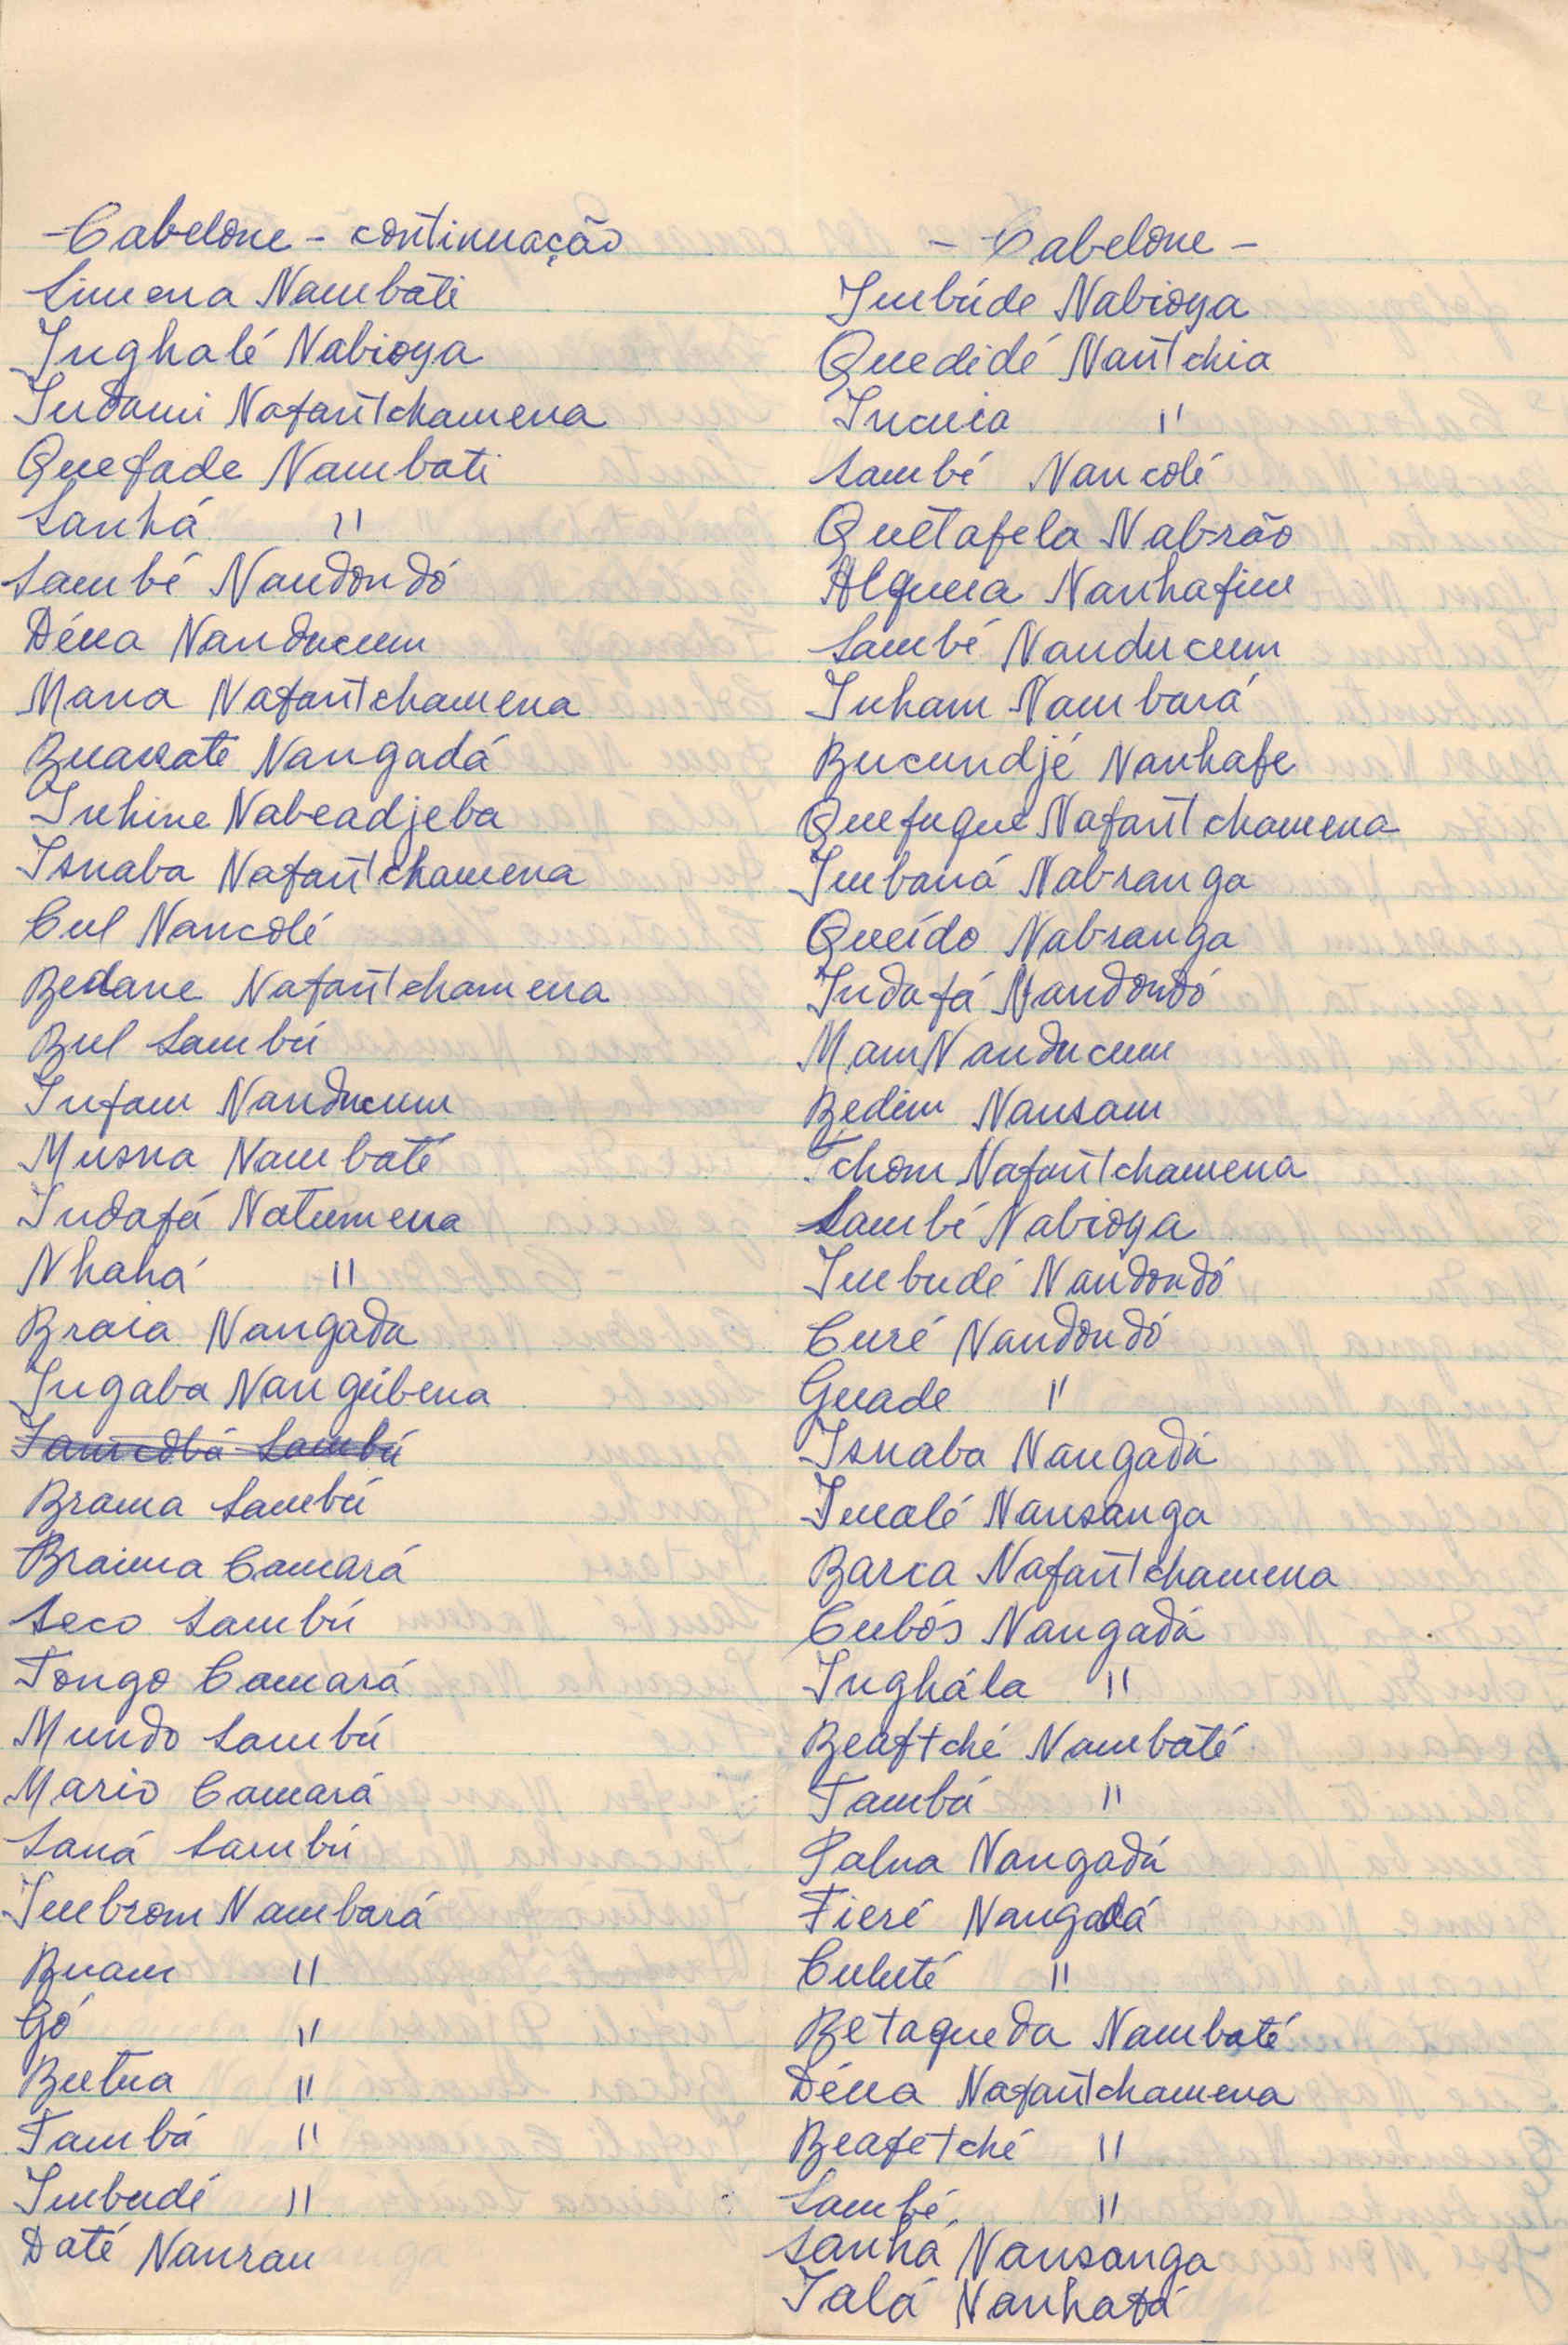 - Cabelone - continuação
Simena Nambati
Inghalé Nabioya
Indami Nafantchamena
Quefade Nambati
Sanhá "
Sambé Nandondó
Déna Nanducum
Mana Nafantchamena
Buawate Nangadá
Inhine Nabeadjeba
Isnaba Nafantchamena
Cul Nancolé
Bedane Nafantchamena
Bul Sambú
Infam Nanducum
Musna Nambaté
Indafá Natumena
Nhahá "
Braia Nangada
Ingaba Nangúbena
Sambú
Brama Sambú
Braima Camará
Seco Sambú
Tongo Camará
Mundo Sambú
Mario Camará
Saná Sambú
Imbrom Nambará
Buam "
Gó "
Butna "
Tambá "
Imbudé "
Daté Nanran
- Cabelone -
Imbúde Nabioya
Quedidé Nantchia
Incuia "
Sambé Nancolé
Quetafela Nabrão
Alquna Nanhafim
Sambé Nanducum
Inham Nambará
Bucundjé Nanhafe
Quefugue Nafantchamena
Imbaná Nabranga
Queído Nabranga
Indafá Nandondó
Mam Nanducum
Bedim Nansam
Tchom Nafantchamena
Sambé Nabioya
Imbudé Nandondó
Curé Nandondó
Guade "
Isnaba Nangadá
Imalé Nansanga
Barca Nafantchamena
Cubós Nangadá
Inghála "
Beaftché Nambaté
Tambá "
Palna Nangadá
Fieré Nangadá
Culuté "
Betaqueda Nambaté
Déna Nafantchamena
Beafetché "
Sambé "
Sanhá Nansanga
Ialá Nanhafá